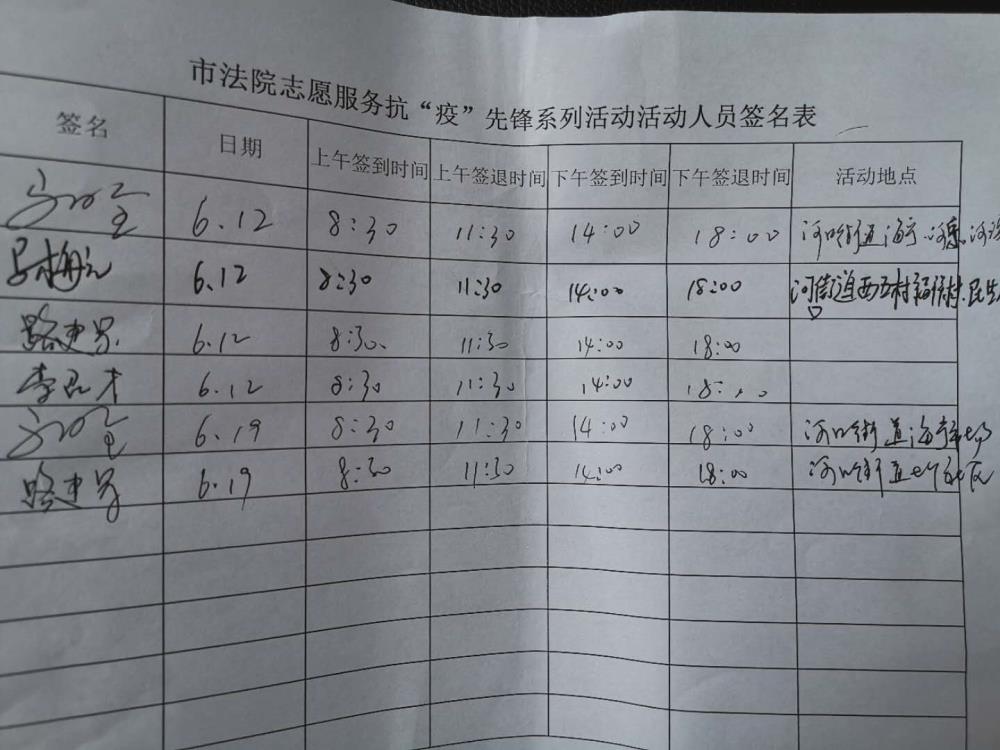 市法院志愿服务抗“疫”先锋系列活动活动人员签名表
签名 日期 上午签到时间 上午签退时间 下午签到时间 下午签退时间 活动地点
6.12 8:30 11:30 14:00 18:00 河口街道海宁
6.12 8:30 11:30 14:00 18:00 河口街道西五村 民生
路建男 6.12 8:30 11:30 14:00 18:00
李 才 6.12 8:30 11:30 14:00 18:00
6.19 8:30 11:30 14:00 18:00 河口街道海宁
路建男 6.19 8:30 11:30 14:00 18:00 河口街道